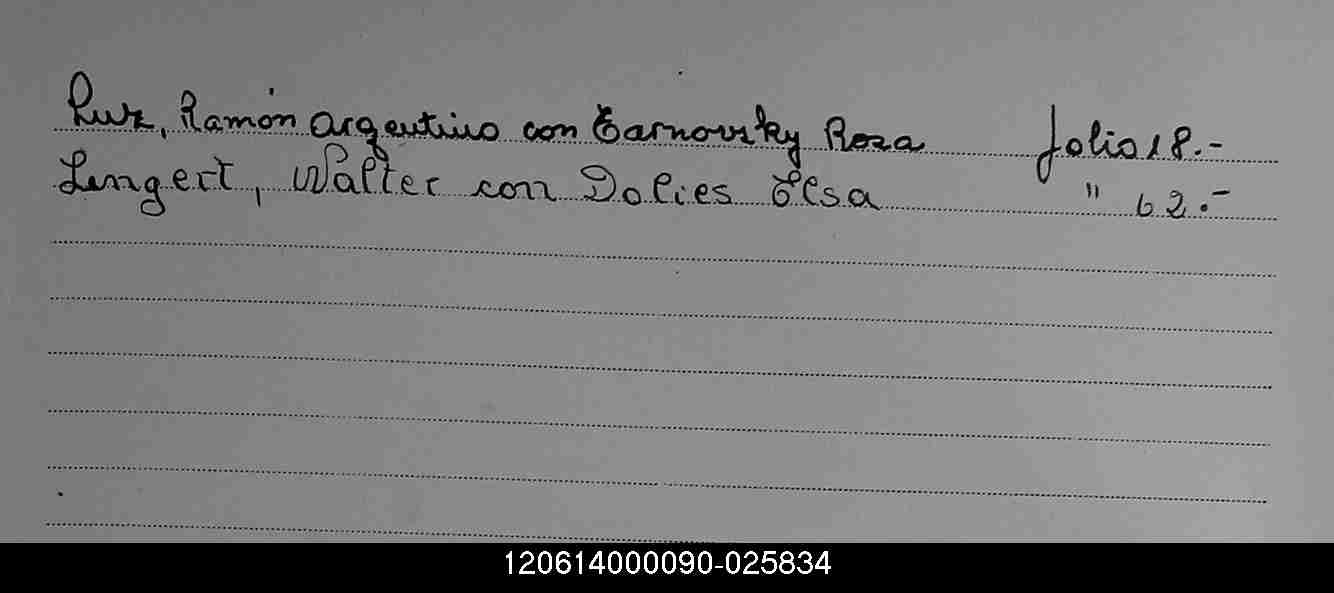 Luz, Ramón Argentino con Tarnovsky Rosa Folio 18.-
Lengert, Walter con Dolies Elsa " 62.-
120614000090-025834